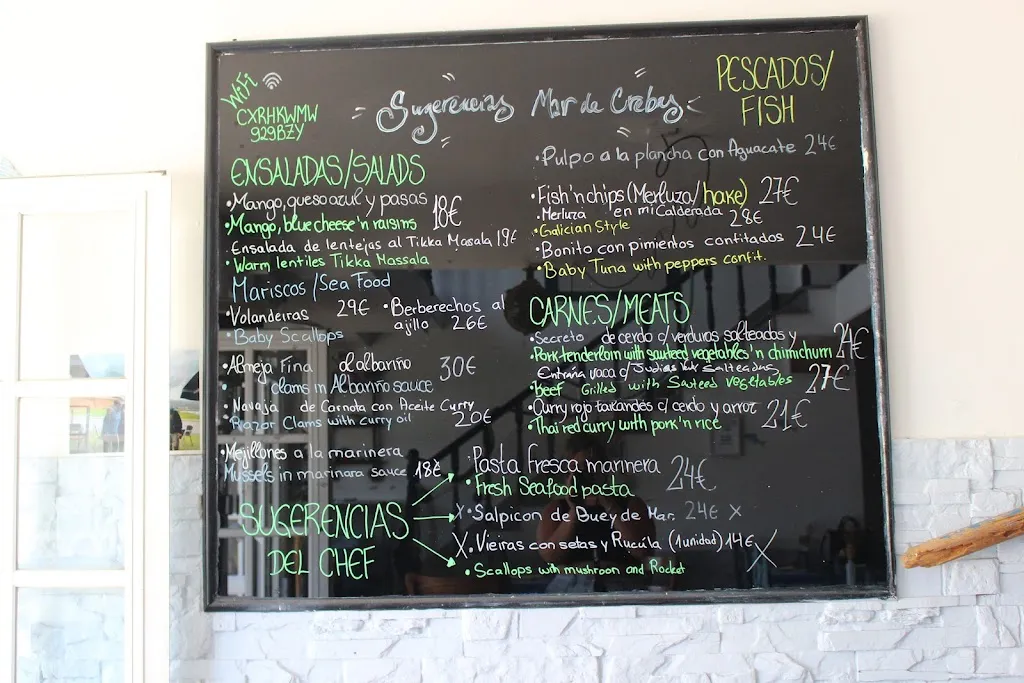 WiFi
CXRHKWMW
929BZY
Sugerencias Mar de Crebas
ENSALADAS/SALADS
•Mango, queso azul y pasas 18€
•Mango, blue cheese 'n raisins
Ensalada de lentejas al Tikka Masala 19€
•Warm lentiles Tikka Massala
Mariscos/Sea Food
•Volandeiras 29€
•Baby Scallops
•Berberechos al
ajillo 26€
•Almeja Fina al albariño 30€
clams in Albariño sauce
•Navaja de Carnota con Aceite Curry
Razor Clams with curry oil 20€
•Mejillones a la marinera
Mussels in marinara sauce 18€
PESCADOS/
FISH
•Pulpo a la plancha con Aguacate 24€
•Fish 'n chips (Merluza/hake) 27€
•Merluza en mi Calderada 28€
•Galician Style
•Bonito con pimientos confitados 24€
•Baby Tuna with peppers confit.
CARNES/MEATS
•Secreto de cerdo c/ verduras salteadas y
•Pork tenderloin with sauteed vegetables 'n chimichurri 24€
Entraña vaca c/ Judías salteadas
•Beef Grilled with Sauteed vegetables 27€
•Curry rojo tailandés c/ cerdo y arroz 21€
•Thai red curry with pork 'n rice
SUGERENCIAS
DEL CHEF
•Pasta fresca marinera 24€
•Fresh Seafood pasta
X•Salpicon de Buey de Mar. 24€ X
X•Vieiras con setas y Rucula (1unidad) 14€ X
•Scallops with mushroom and Rocket